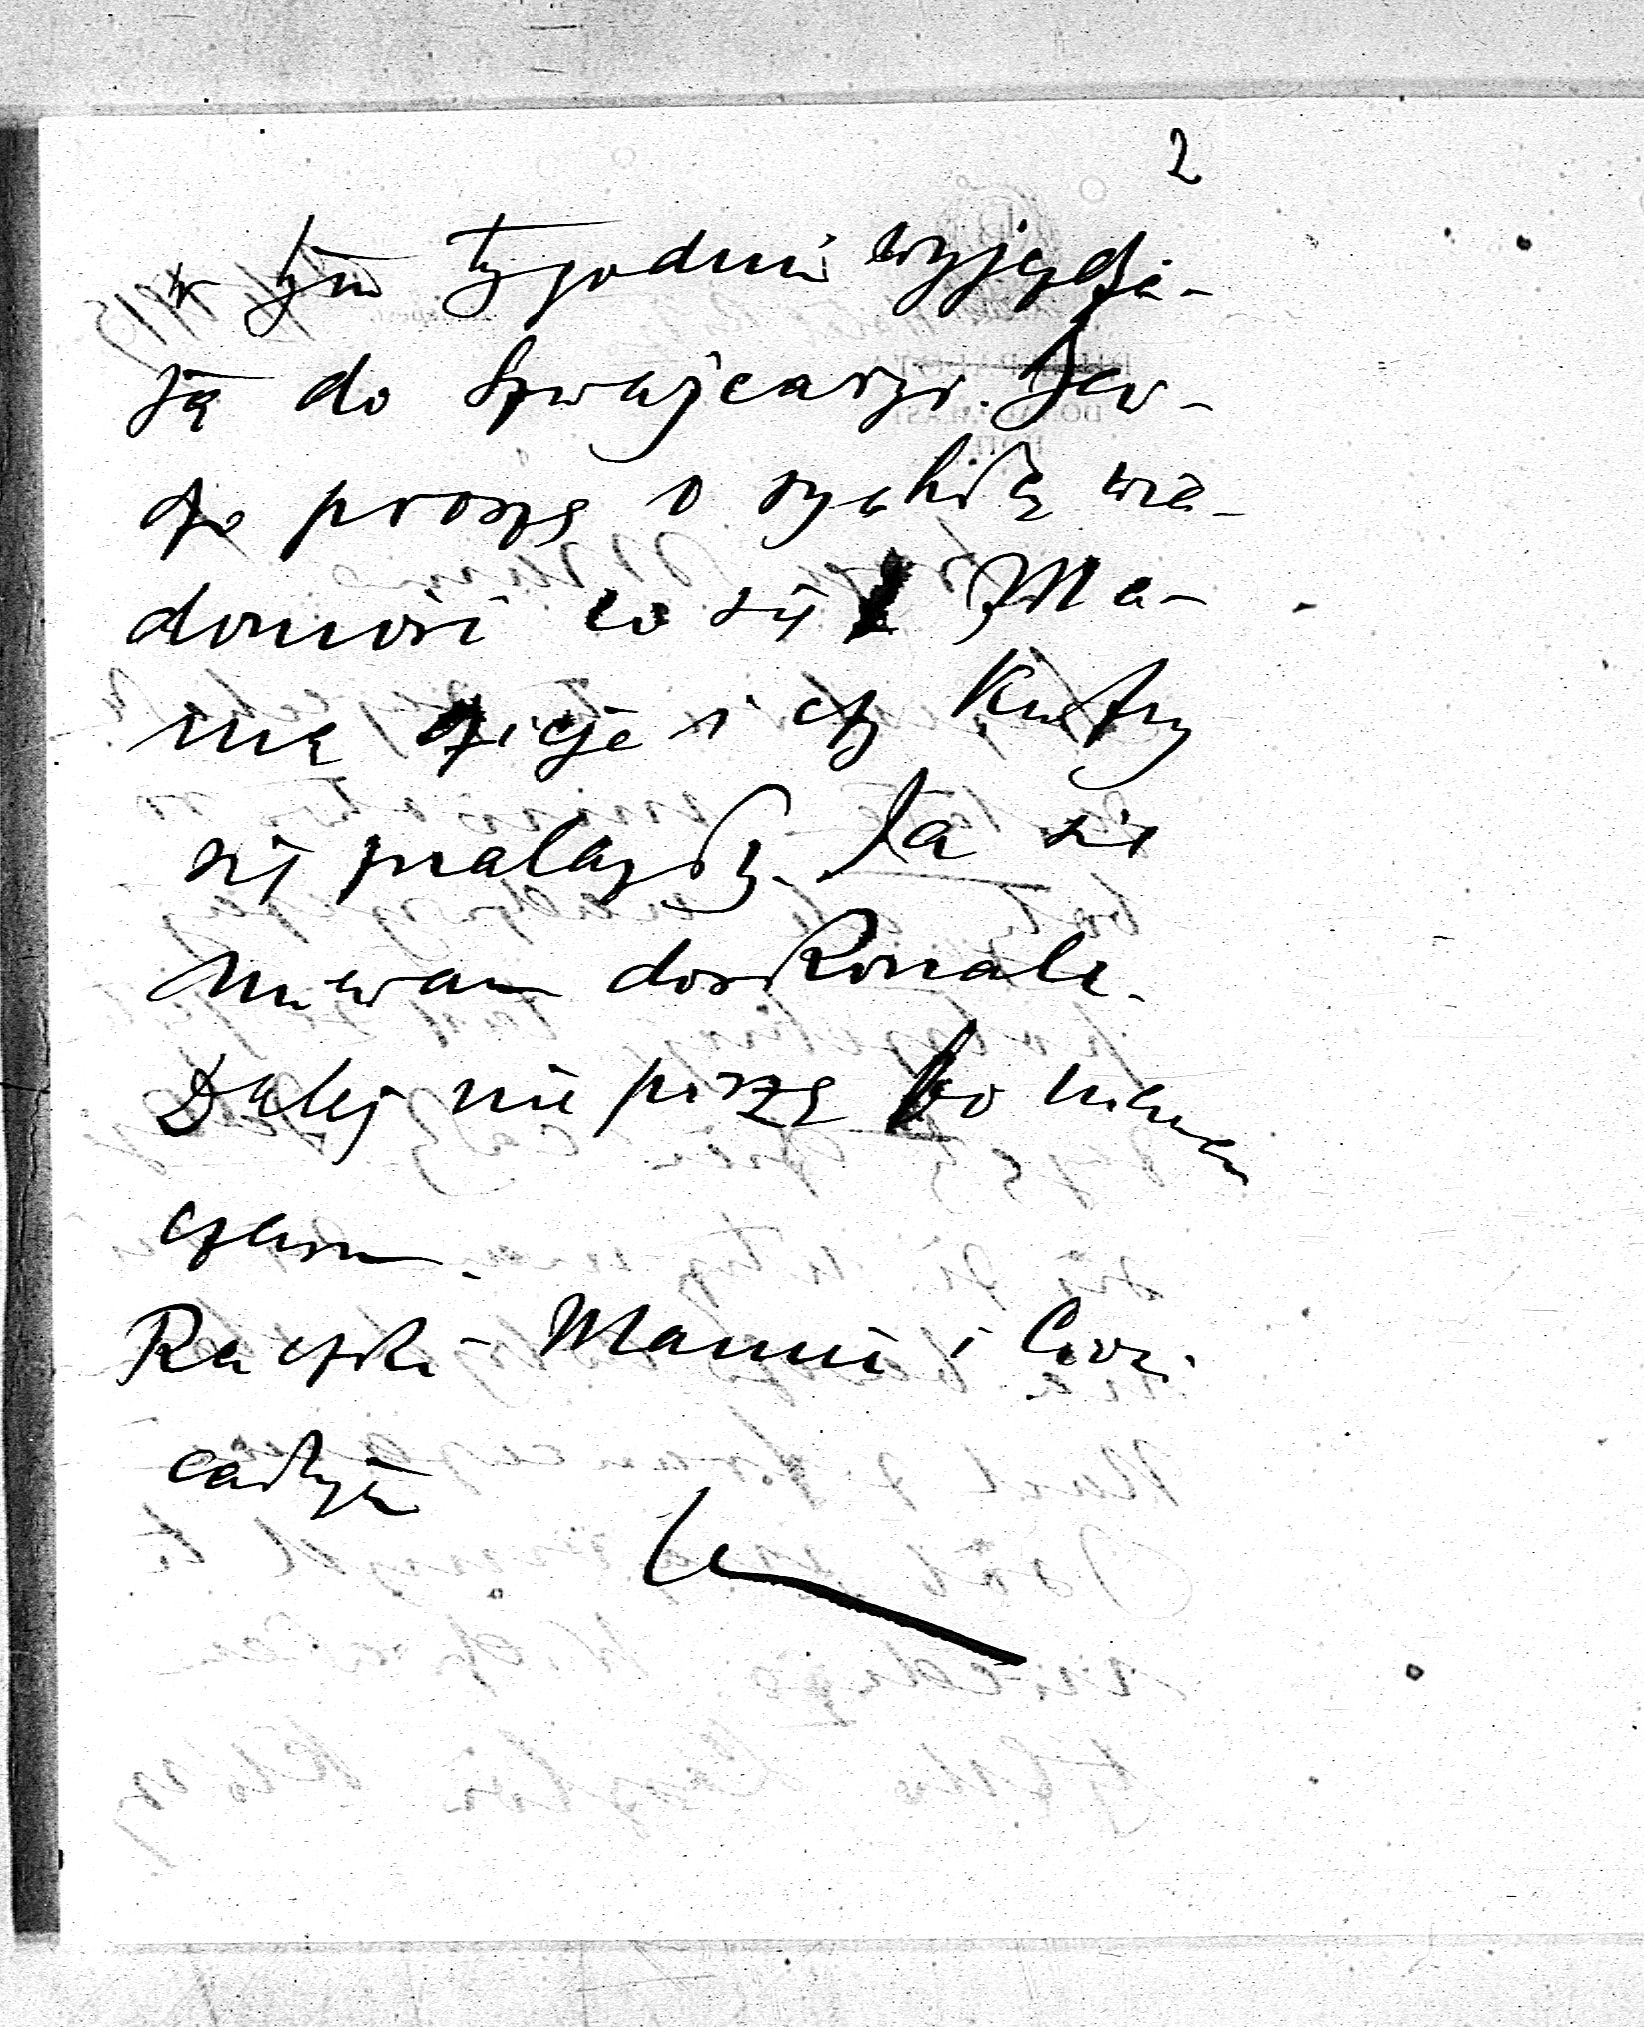 2
w tym tygodniu wyjeżdża-
ją do Szwajcaryi. Bar-
dzo proszę o rychłą wia-
domość co się z Ma-
mą dzieje i czy Kufry
się znalazły. Ja się
miewam doskonale.
Dalej nie piszę bo niemam
czasu.
Rączki Mamie i Cioci
całuję